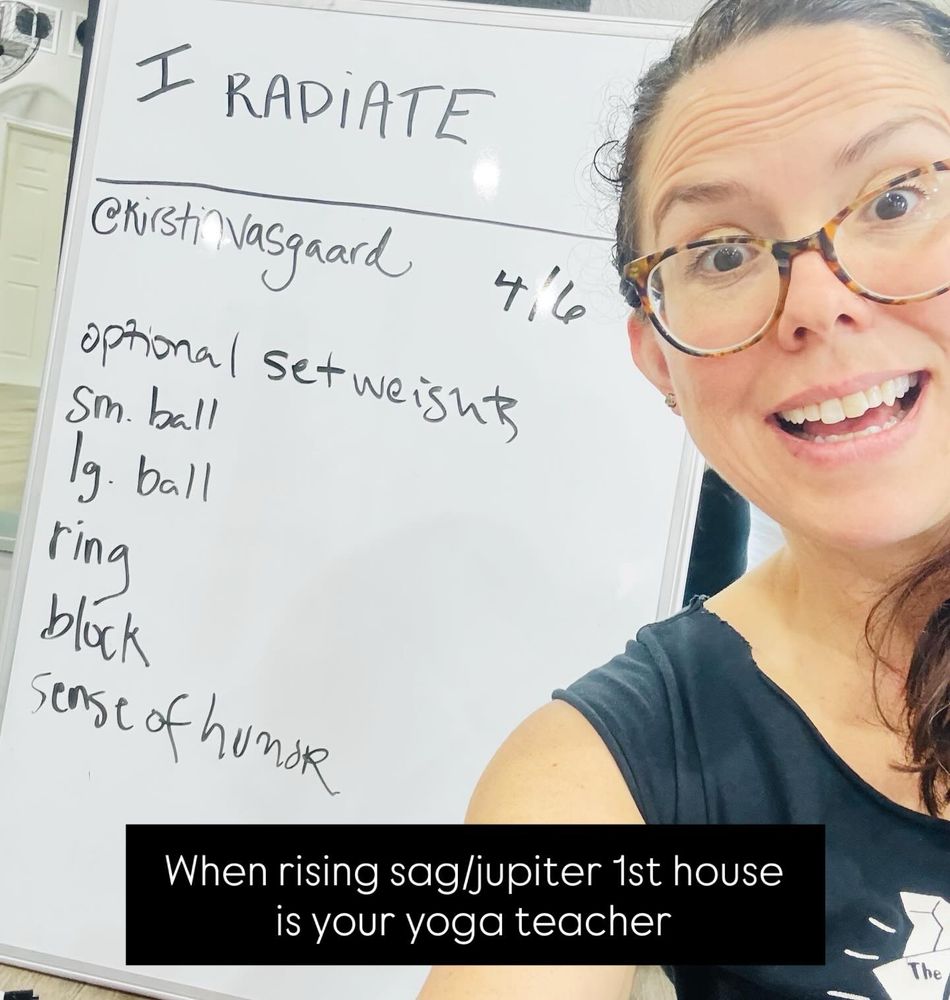 I RADiATE
@KirstinVasgaard
4/6
optional set weights
sm. ball
lg. ball
ring
block
sense of humor
When rising sag/jupiter 1st house
is your yoga teacher
The